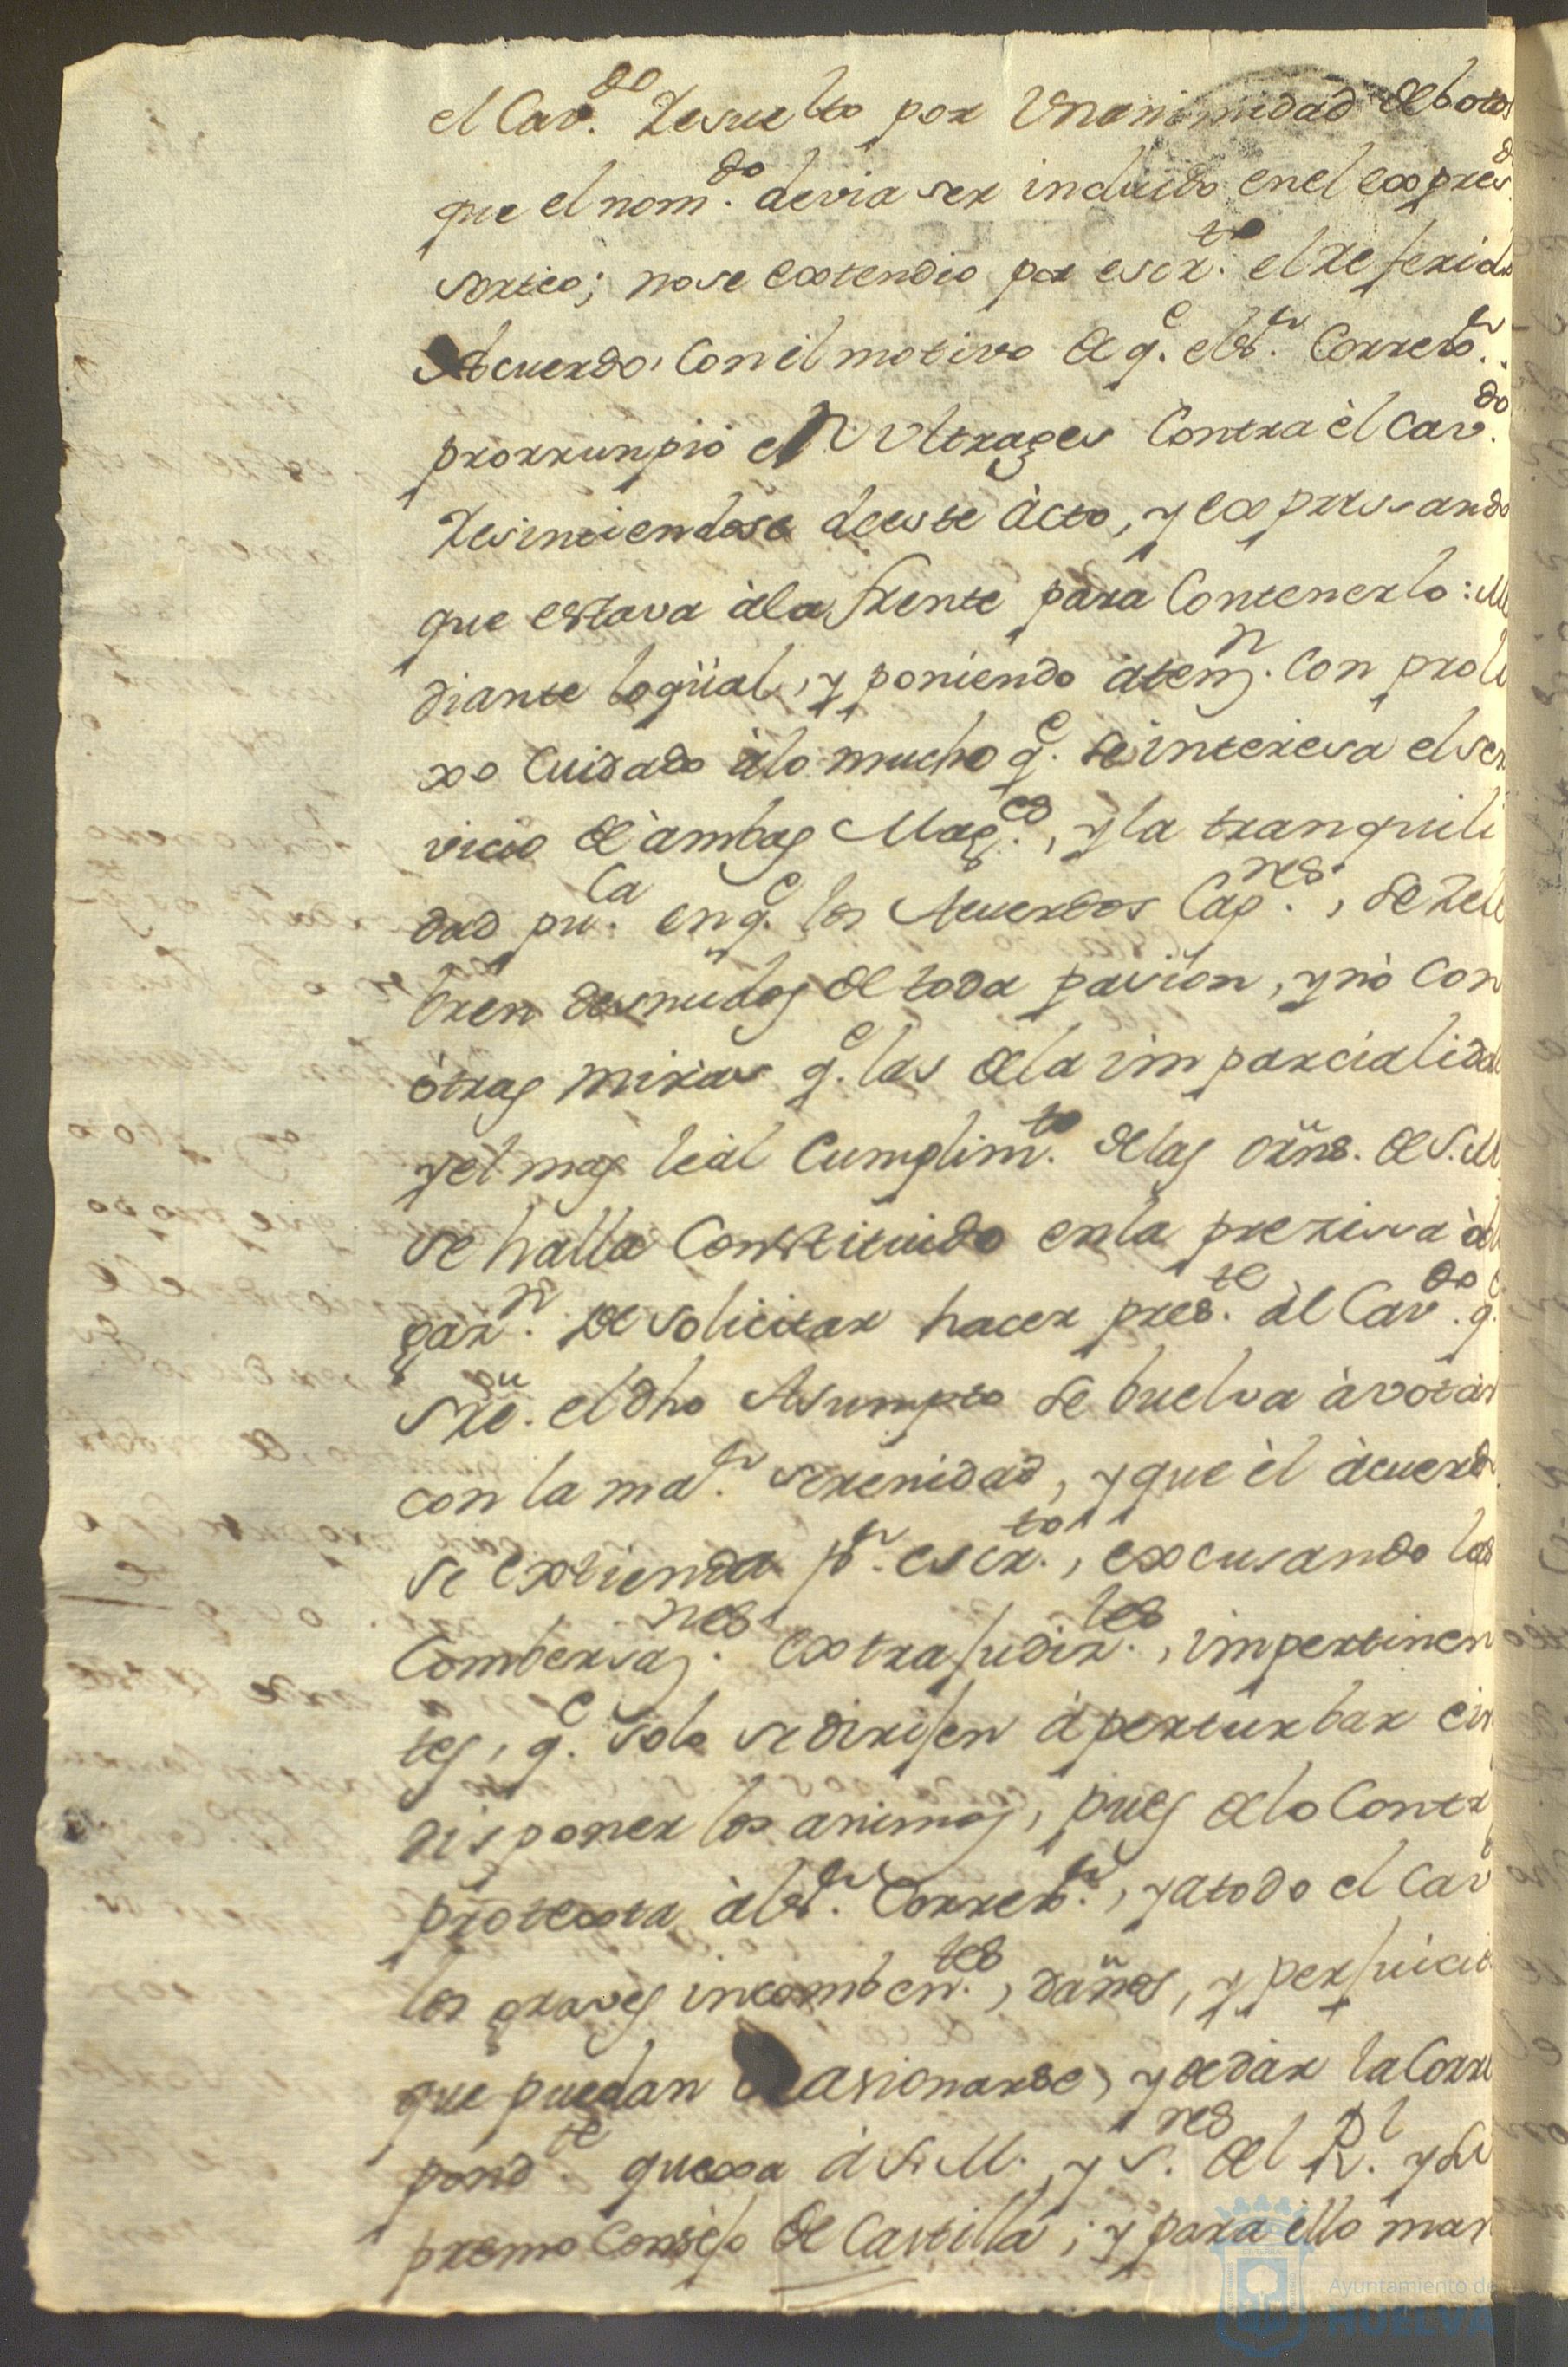 el Cav.do Resuelto por Vnanimidad de botos
que el nom.do devia ser incluido en el expres.do
sorteo; no se extendio por escr.to el Referido
Acuerdo, con el motivo de q.e el S.r Correxo.r
prorrunpio en Vltrages Contra èl Cav.do
Resintiendose de este àcto, y expressando
que estava àla frente para Contenerlo: Me
diante loqüal, y poniendo aten.n con proli
xo Cuidado àlo mucho q.e se interesa el ser
vicio de àmbas Mag.es, y la tranquili
dad pu.ca en q.e los Acuerdos Cap.res, se Zele
bren desnudos de toda pasion, y nò con
òtras miras q.e las de la imparcialidad
y el mas leàl Cumplim.to de las òrns. de S.M.
se halla Constituido en la prezisa òbli
gaz.n de solicitar hacer pres.te àl Cav.do q.e
sre. el dho Asumpto se buelva à votàr
con la ma.r serenidad, y que èl àcuerdo
se extienda p.r escr.to, excusando las
Combersaz.nes extrajudiz.les, impertinen
tes, q.e solo se dirijen à perturbar e in
disponer los animos, pues de lo Contr.o
protexta àl S.r Correxo.r, y a todo el Cav.do
los graves incomben.tes, daños, y perjuicios
que puedan Ocasionarse, y de dàr la Corres
pond.te quexa à S.M. y S.res del R.l y Su
premo Consejo de Castilla; y para èllo man
Ayuntamiento de
HUELVA